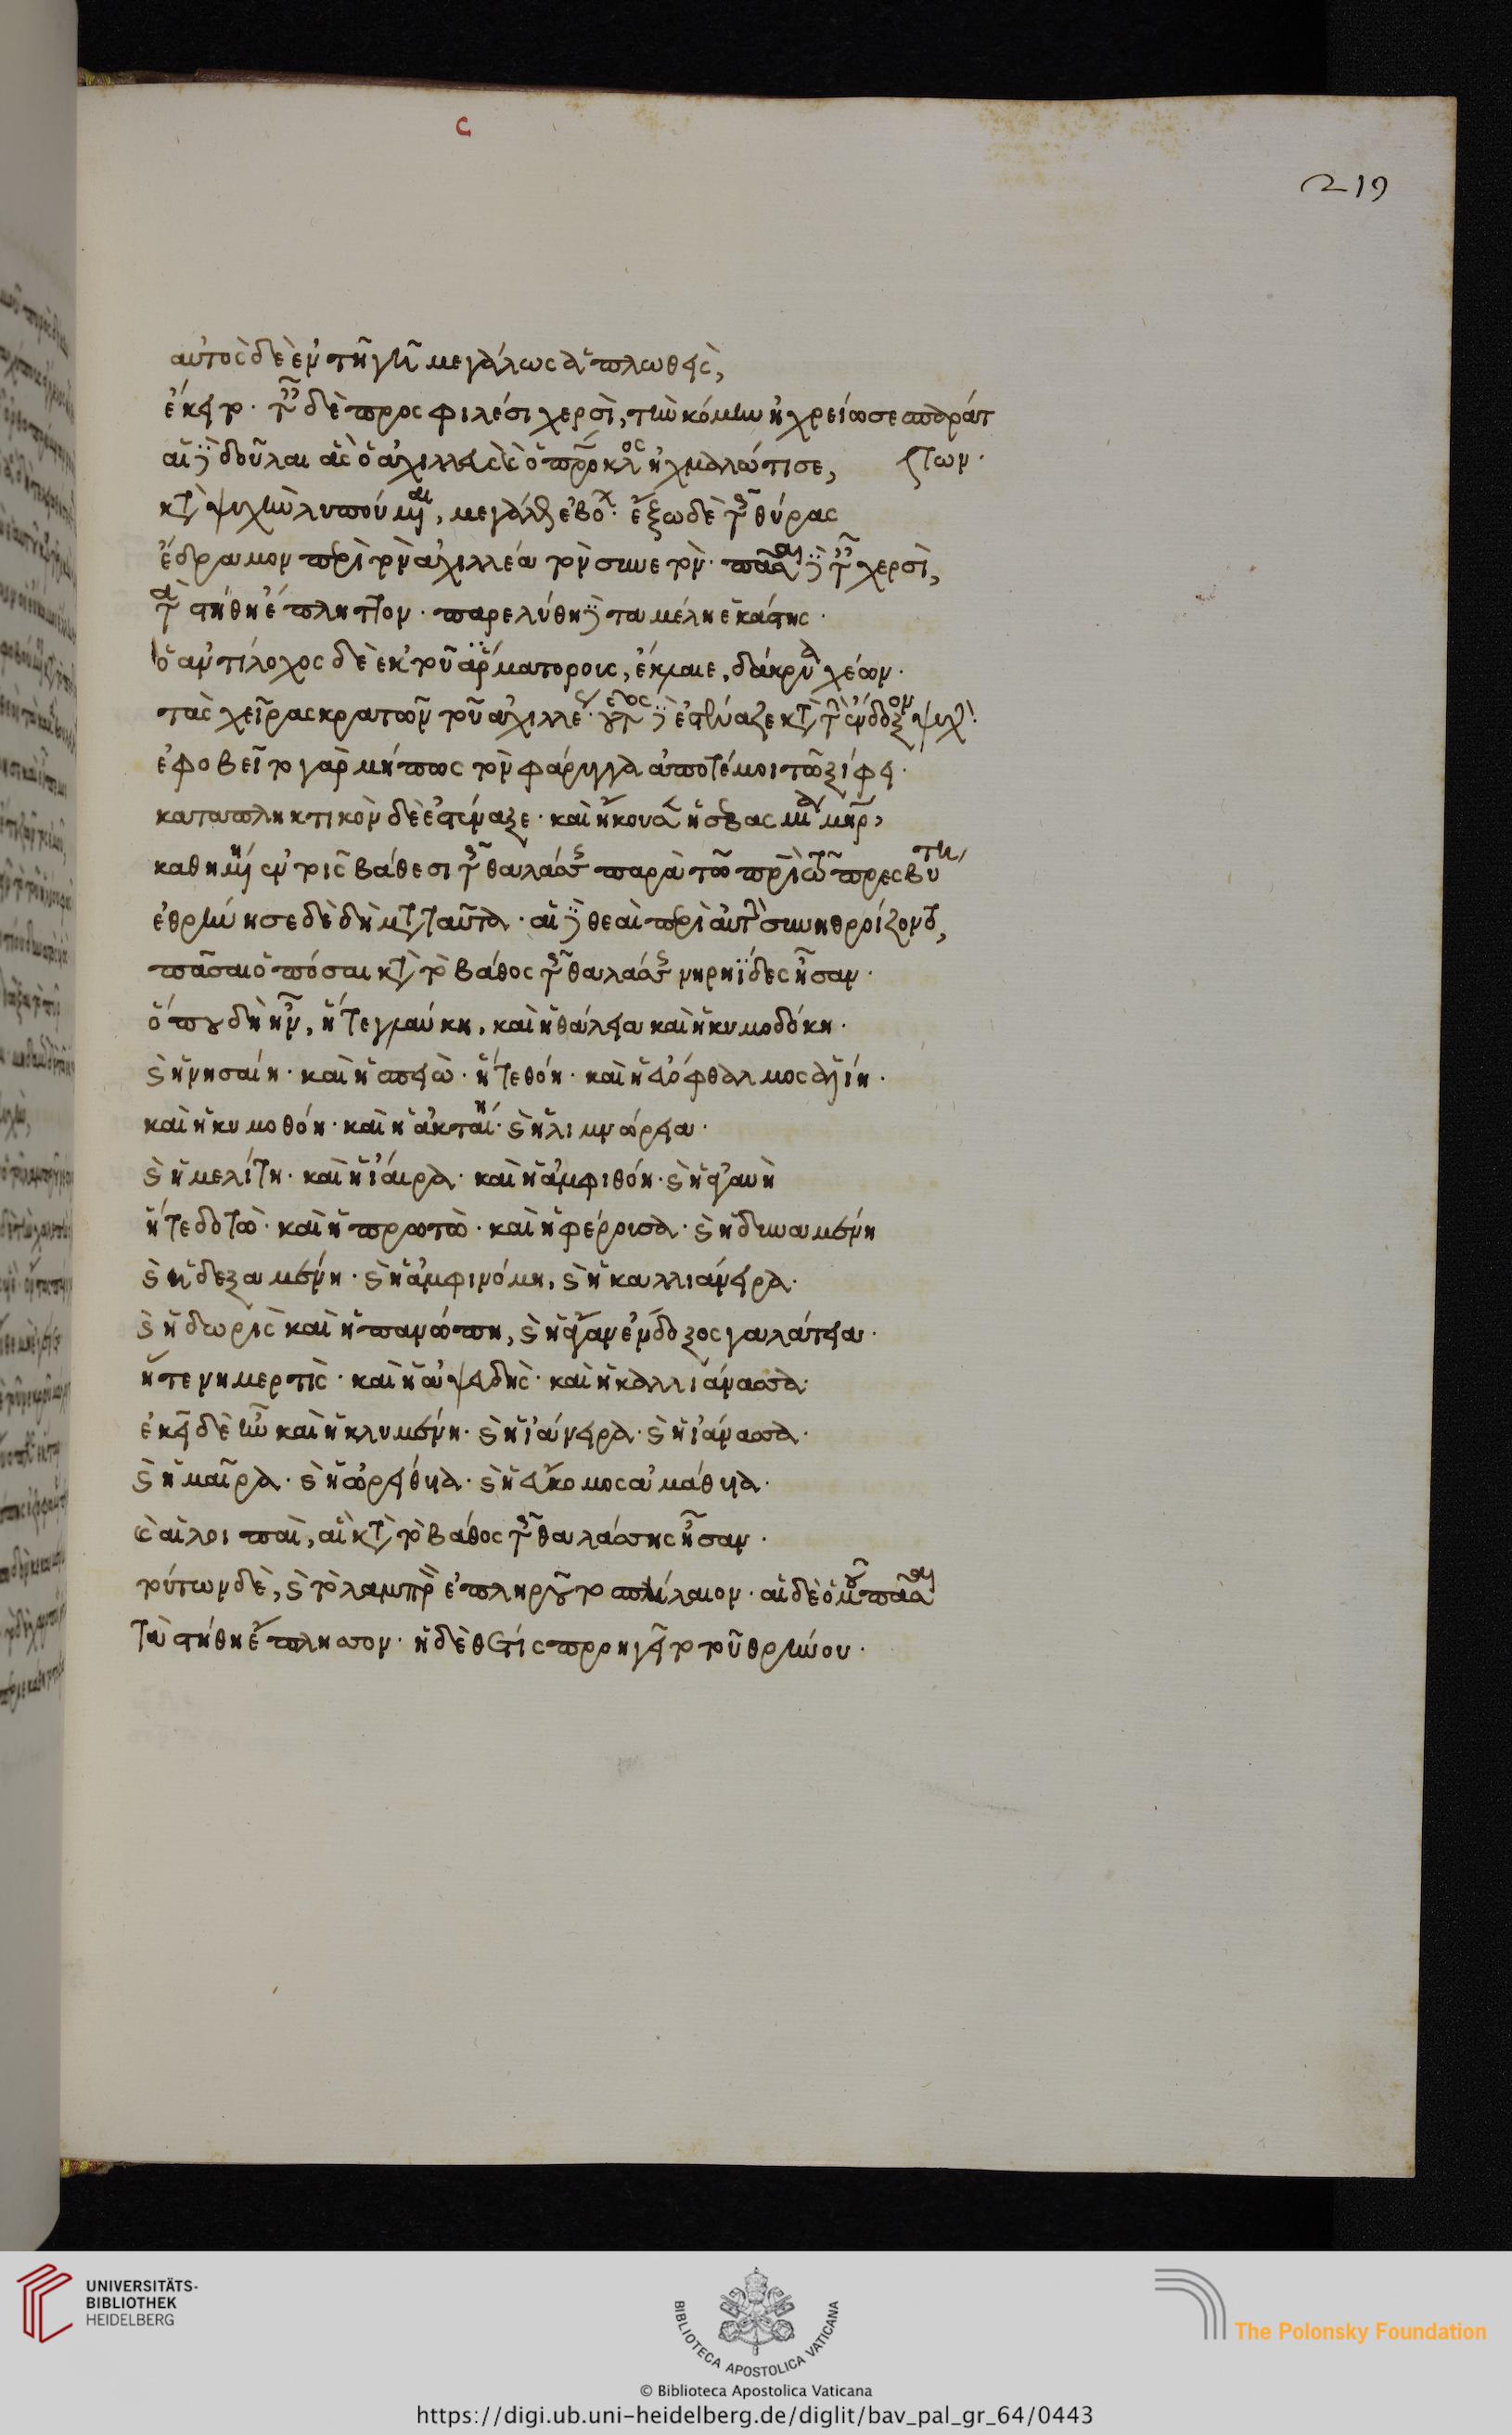 C
219
αὐτὸς δὲ ἐν τῆ γῆ μεγάλως ἁπλωθεὶς,
ἔκειτο. ταῖς δὲ προσφιλέσι χερσὶ, τὴν κόμην ἠχρείωσε σπαράτ
αἱ δὲ δοῦλαι ἃς ὁ ἀχιλλεὺς καὶ ὁ πάτροκλος ἠχμαλώτισε, των.
κατὰ ψυχὴν λυπούμεναι, μεγάλως ἐβόων. ἔξω δὲ τῆς θύρας
ἔδραμον περὶ τὸν ἀχιλλέα τὸν συνετόν. πᾶσαι δὲ ταῖς χερσὶ,
τὰ στήθη ἔπληττον. παρελύθη δὲ τα μέλη ἑκάστης.
ὁ ἀντίλοχος δὲ ἐκ τοῦ ἑτέρου μέρους, ἔκλαιε, δάκρυα χέων.
τὰς χεῖρας κρατῶν τοῦ ἀχιλλέως. οὗτος δὲ ἐστέναζε κατὰ τὴν ἔνδοξον ψυχήν.
ἐφοβεῖτο γὰρ μήπως τὸν φάρυγγα ἀποτέμοι τῶ ξίφει.
καταπληκτικὸν δὲ ἐστέναξε. καὶ ἤκουσεν ἡ σεβασμία μήτηρ,
καθημένη ἐν τοῖς βάθεσι τῆς θαλάσσης παρὰ τῶ πατρὶ τῶ πρεσβύτη
ἐθρήνησε δὲ δὴ μετὰ ταῦτα. αἱ δὲ θεαὶ περὶ αὐτὴν συνηθροίζοντο,
πᾶσαι ὁπόσαι κατὰ τὸ βάθος τῆς θαλάσσης νηρηΐδες ἦσαν.
ὅπου δὴ ἦν, ἥτε γλαύκη, καὶ ἡ θάλεια καὶ ἡ κυμοδόκη.
καὶ ἡ νησαίη. καὶ ἡ σπειώ. ἥτε θόη. καὶ ἡ εὐόφθαλμος ἁλίη.
καὶ ἡ κυμοθόη. καὶ ἡ ἀκταίη. καὶ ἡ λιμνώρεια.
καὶ ἡ μελίτη. καὶ ἡ ἴαιρα. καὶ ἡ ἀμφιθόη. καὶ ἡ ἀγαυὴ
ἥτε δοτώ. καὶ ἡ πρωτώ. καὶ ἡ φέρουσα. καὶ ἡ δυναμένη
καὶ ἡ δεξαμένη. καὶ ἡ ἀμφινόμη, καὶ ἡ καλλιάνειρα.
καὶ ἡ δωρὶς καὶ ἡ πανόπη, καὶ ἡ ἄγαν ἔνδοξος γαλάτεια.
ἥτε νημερτὶς. καὶ ἡ ἀψευδής. καὶ ἡ καλλιάνασσα.
ἐκεῖ δὲ ἦν καὶ ἡ κλυμένη. καὶ ἡ ἰάνειρα. καὶ ἡ ἰάνασσα.
καὶ ἡ μαῖρα. καὶ ἡ ὠρείθυια. καὶ ἡ εὔκομος ἀμάθυια.
καὶ ἄλλαι πᾶσαι, αἳ κατὰ τὸ βάθος τῆς θαλάσσης ἦσαν.
τούτων δὲ, καὶ τὸ λαμπρὸν ἐπληροῦτο σπήλαιον. αἱ δὲ ὁμοῦ πᾶσαι
τὰ στήθη ἔπλησσον. ἡ δὲ θέτις προηγεῖτο τοῦ θρήνου.
UNIVERSITÄTS-
BIBLIOTHEK
HEIDELBERG
BIBLIOTECA APOSTOLICA VATICANA
The Polonsky Foundation
© Biblioteca Apostolica Vaticana
https://digi.ub.uni-heidelberg.de/diglit/bav_pal_gr_64/0443